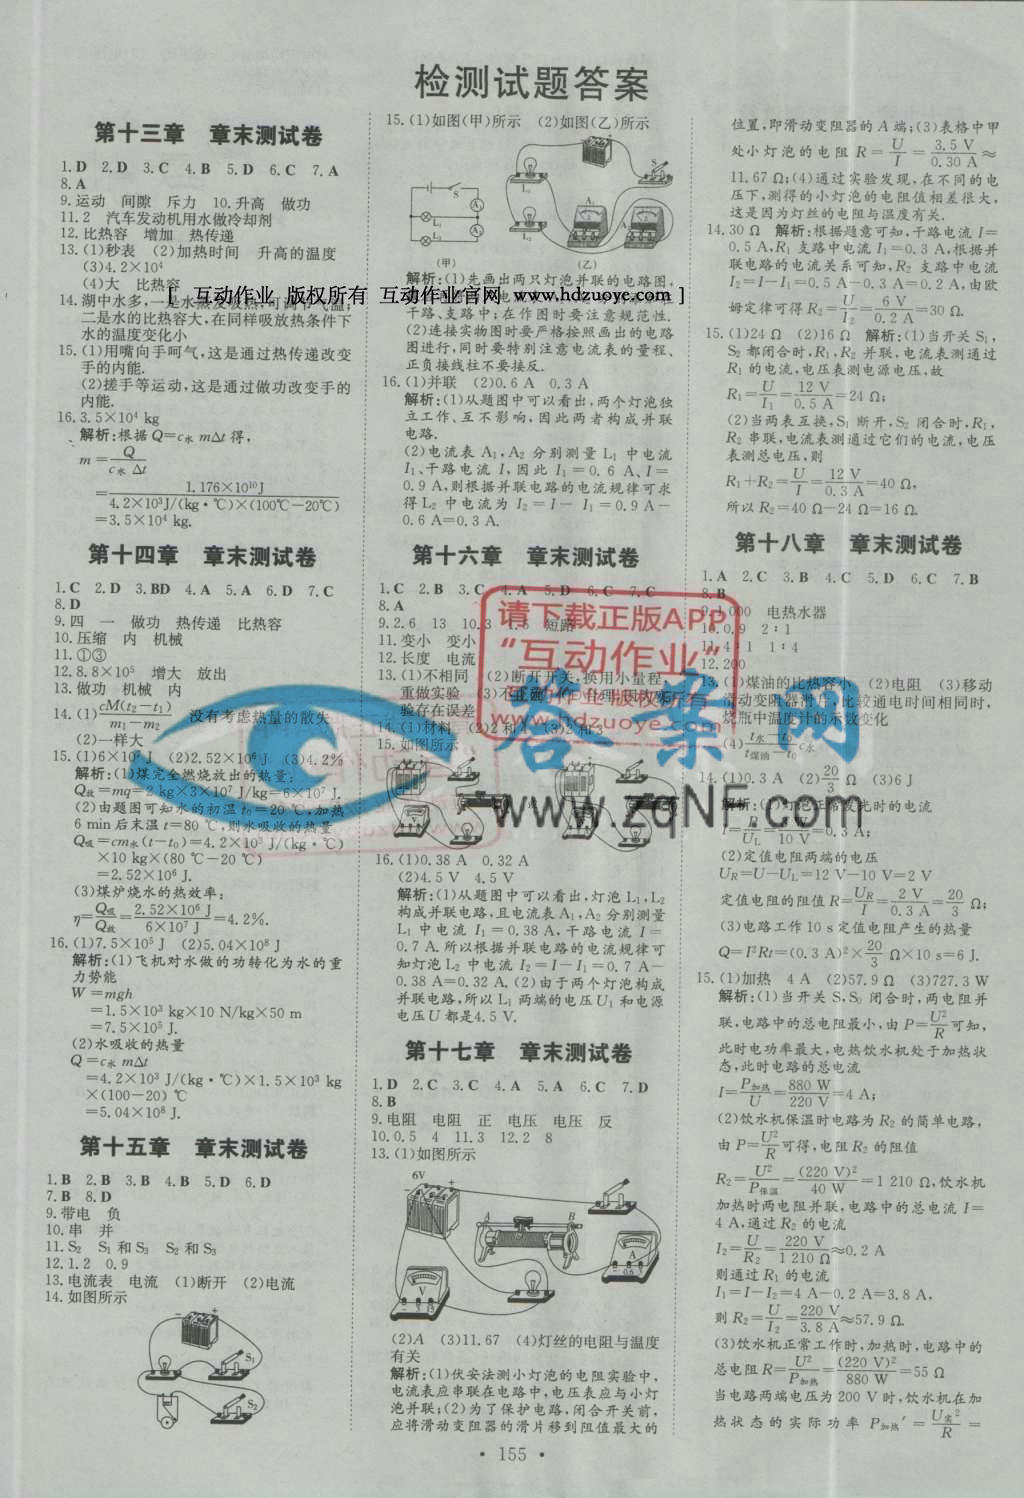 检测试题答案
第十三章 章末测试卷
1.D 2.D 3.C 4.B 5.D 6.C 7.A
8.A
9.运动 间隙 斥力 10.升高 做功
11.2 汽车发动机用水做冷却剂
12.比热容 增加 热传递
13.(1)秒表 (2)加热时间 升高的温度
(3)4.2×10⁴
(4)大 比热容
[ 互动作业 版权所有 互动作业官网 www.hdzuoye.com ]
14.湖中水多,一是水蒸发吸热,可调节气温;
二是水的比热容大,在同样吸放热条件下
水的温度变化小
15.(1)用嘴向手呵气,这是通过热传递改变
手的内能.
(2)搓手等运动,这是通过做功改变手的
内能.
16.3.5×10⁴ kg
解析:根据Q=c水 mΔt得,
m=Q/(c水 Δt)
=1.176×10¹⁰J/(4.2×10³J/(kg·℃)×(100℃-20℃))
=3.5×10⁴ kg.
第十四章 章末测试卷
1.C 2.D 3.BD 4.A 5.A 6.D 7.C
8.D
9.四 一 做功 热传递 比热容
10.压缩 内 机械
11.①③
12.8.8×10⁵ 增大 放出
13.做功 机械 内
14.(1)cM(t₂-t₁)/(m₁-m₂) 没有考虑热量的散失
(2)一样大
15.(1)6×10⁷ J (2)2.52×10⁶ J (3)4.2%
解析:(1)煤完全燃烧放出的热量:
Q放=mq=2 kg×3×10⁷ J/kg=6×10⁷ J.
(2)由题图可知水的初温t₀=20℃,加热
6 min后末温t=80℃,则水吸收的热量
Q吸=cm水(t-t₀)=4.2×10³ J/(kg·℃)
×10 kg×(80 ℃-20 ℃)
=2.52×10⁶ J.
(3)煤炉烧水的热效率:
η=Q吸/Q放=2.52×10⁶ J/6×10⁷ J=4.2%.
16.(1)7.5×10⁵ J (2)5.04×10⁸ J
解析:(1)飞机对水做的功转化为水的重
力势能
W=mgh
=1.5×10³ kg×10 N/kg×50 m
=7.5×10⁵ J.
(2)水吸收的热量
Q=c水 mΔt
=4.2×10³ J/(kg·℃)×1.5×10³ kg
×(100-20) ℃
=5.04×10⁸ J.
第十五章 章末测试卷
1.B 2.B 3.B 4.D 5.D 6.D
7.B 8.D
9.带电 负
10.串 并
11.S₂ S₁和S₃ S₂和S₃
12.1.2 0.9
13.电流表 电流 (1)断开 (2)电流
14.如图所示
- +
S₁
S₂
15.(1)如图(甲)所示 (2)如图(乙)所示
S
A
L₁
A₁
L₂
(甲)
(乙)
解析:(1)先画出两只灯泡并联的电路图,
干路、支路中;在作图时要注意规范性.
(2)连接实物图时要严格按照画出的电路
图进行,同时要特别注意电流表的量程、
正负接线柱不要接反.
16.(1)并联 (2)0.6 A 0.3 A
解析:(1)从题图中可以看出,两个灯泡独
立工作、互不影响,因此两者构成并联
电路.
(2)电流表A₁,A₂ 分别测量 L₁ 中电流
I₁、干路电流 I,因此 I₁=0.6 A、I=
0.9 A,则根据并联电路的电流规律可求
得 L₂ 中电流为 I₂=I-I₁=0.9 A-
0.6 A=0.3 A.
第十六章 章末测试卷
1.C 2.B 3.C 4.A 5.D 6.C 7.C
8.A
9.2.6 13 10.3 1.5 短路
11.变小 变小
12.长度 电流
13.(1)不相同 (2)断开开关,换用小量程,
重做实验 (3)不正确
验存在误差
14.(1)材料 (2)2和4 (3)2和3
15.如图所示
16.(1)0.38 A 0.32 A
(2)4.5 V 4.5 V
解析:(1)从题图中可以看出,灯泡 L₁,L₂
构成并联电路,且电流表A₁,A₂ 分别测量
L₁ 中电流 I₁=0.38 A,干路电流 I=
0.7 A.所以根据并联电路的电流规律可
知灯泡 L₂ 中电流为 I₂=I-I₁=0.7 A-
0.38 A=0.32 A.(2)由于两个灯泡构成
并联电路,所以L₁ 两端的电压U₁和电源
电压 U 都是4.5 V.
第十七章 章末测试卷
1.D 2.C 3.C 4.A 5.A 6.C 7.D
8.B
9.电阻 电阻 正 电压 电压 反
10.0.5 4 11.3 12.2 8
13.(1)如图所示
6V
A B
V
A
-0.6
(2)A (3)11.67 (4)灯丝的电阻与温度
有关
解析:(1)伏安法测小灯泡的电阻实验中,
电流表应串联在电路中,电压表应与小灯
泡并联;(2)为了保护电路,闭合开关前,
应将滑动变阻器的滑片移到阻值最大的
位置,即滑动变阻器的 A 端;(3)表格中甲
处小灯泡的电阻 R=U/I=3.5 V/0.30 A≈
11.67 Ω;(4)通过实验发现,在不同的电
压下,测得的小灯泡的电阻值相差很大,
这是因为灯丝的电阻与温度有关.
14.30 Ω 解析:根据题意可知,干路电流 I=
0.5 A,R₁ 支路中电流 I₁=0.3 A,根据并
联电路的电流关系可知,R₂ 支路中电流
I₂=I-I₁=0.5 A-0.3 A=0.2 A,由欧
姆定律可得R₂=U/I₂=6 V/0.2 A=30 Ω.
15.(1)24 Ω (2)16 Ω 解析:(1)当开关 S₁,
S₂ 都闭合时,R₁,R₂ 并联,电流表测通过
R₁ 的电流,电压表测电源电压,故
R₁=U/I₁=12 V/0.5 A=24 Ω;
(2)当两表互换,S₁ 断开,S₂ 闭合时,R₁,
R₂ 串联,电流表测通过它们的电流,电压
表测总电压,则
R₁+R₂=U/I=12 V/0.3 A=40 Ω,
所以 R₂=40 Ω-24 Ω=16 Ω.
第十八章 章末测试卷
1.A 2.C 3.B 4.C 5.D 6.C 7.D
8.B
9.1 000 电热水器
10.0.9 2∶1
11.4∶1 1∶4
12.200
13.(1)煤油的比热容小 (2)电阻 (3)移动
滑动变阻器滑片,比较通电时间相同时,
烧瓶中温度计的示数变化
14.(1)0.3 A (2)20/3 Ω (3)6 J
解析:(1)灯泡正常发光时的电流
(2)定值电阻两端的电压
UR=U-UL=12 V-10 V=2 V
定值电阻的阻值R=UR/I=2 V/0.3 A=20/3 Ω;
(3)电路工作 10 s 定值电阻产生的热量
Q=I²Rt=(0.3 A)²×20/3 Ω×10 s=6 J.
15.(1)加热 4 A (2)57.9 Ω (3)727.3 W
解析:(1)当开关 S,S₀ 闭合时,两电阻并
联,电路中的总电阻最小,由 P=U²/R可知,
此时电功率最大,电热饮水机处于加热状
态,此时电路的总电流
I=P加热/U=880 W/220 V=4 A;
(2)饮水机保温时电路为 R₂ 的简单电路,
由 P=U²/R可得,电阻 R₂ 的阻值
R₂=U²/P保温=(220 V)²/40 W=1 210 Ω,饮水机
加热时两电阻并联,电路中的总电流 I=
4 A,通过 R₂ 的电流
I₂=U/R₂=220 V/1 210 Ω≈0.2 A
则通过 R₁ 的电流
I₁=I-I₂=4 A-0.2 A=3.8 A,
则 R₂=U/I₂=220 V/3.8 A≈57.9 Ω.
(3)饮水机正常工作时,加热时,电路中的
总电阻 R=U²/P加热=(220 V)²/880 W=55 Ω
当电路两端电压为 200 V 时,饮水机在加
热状态的实际功率 P加热′=U实²/R=
请下载正版APP
“互动作业”
www.hdzuoye.com
答案网
www.zqNF.com
· 155 ·